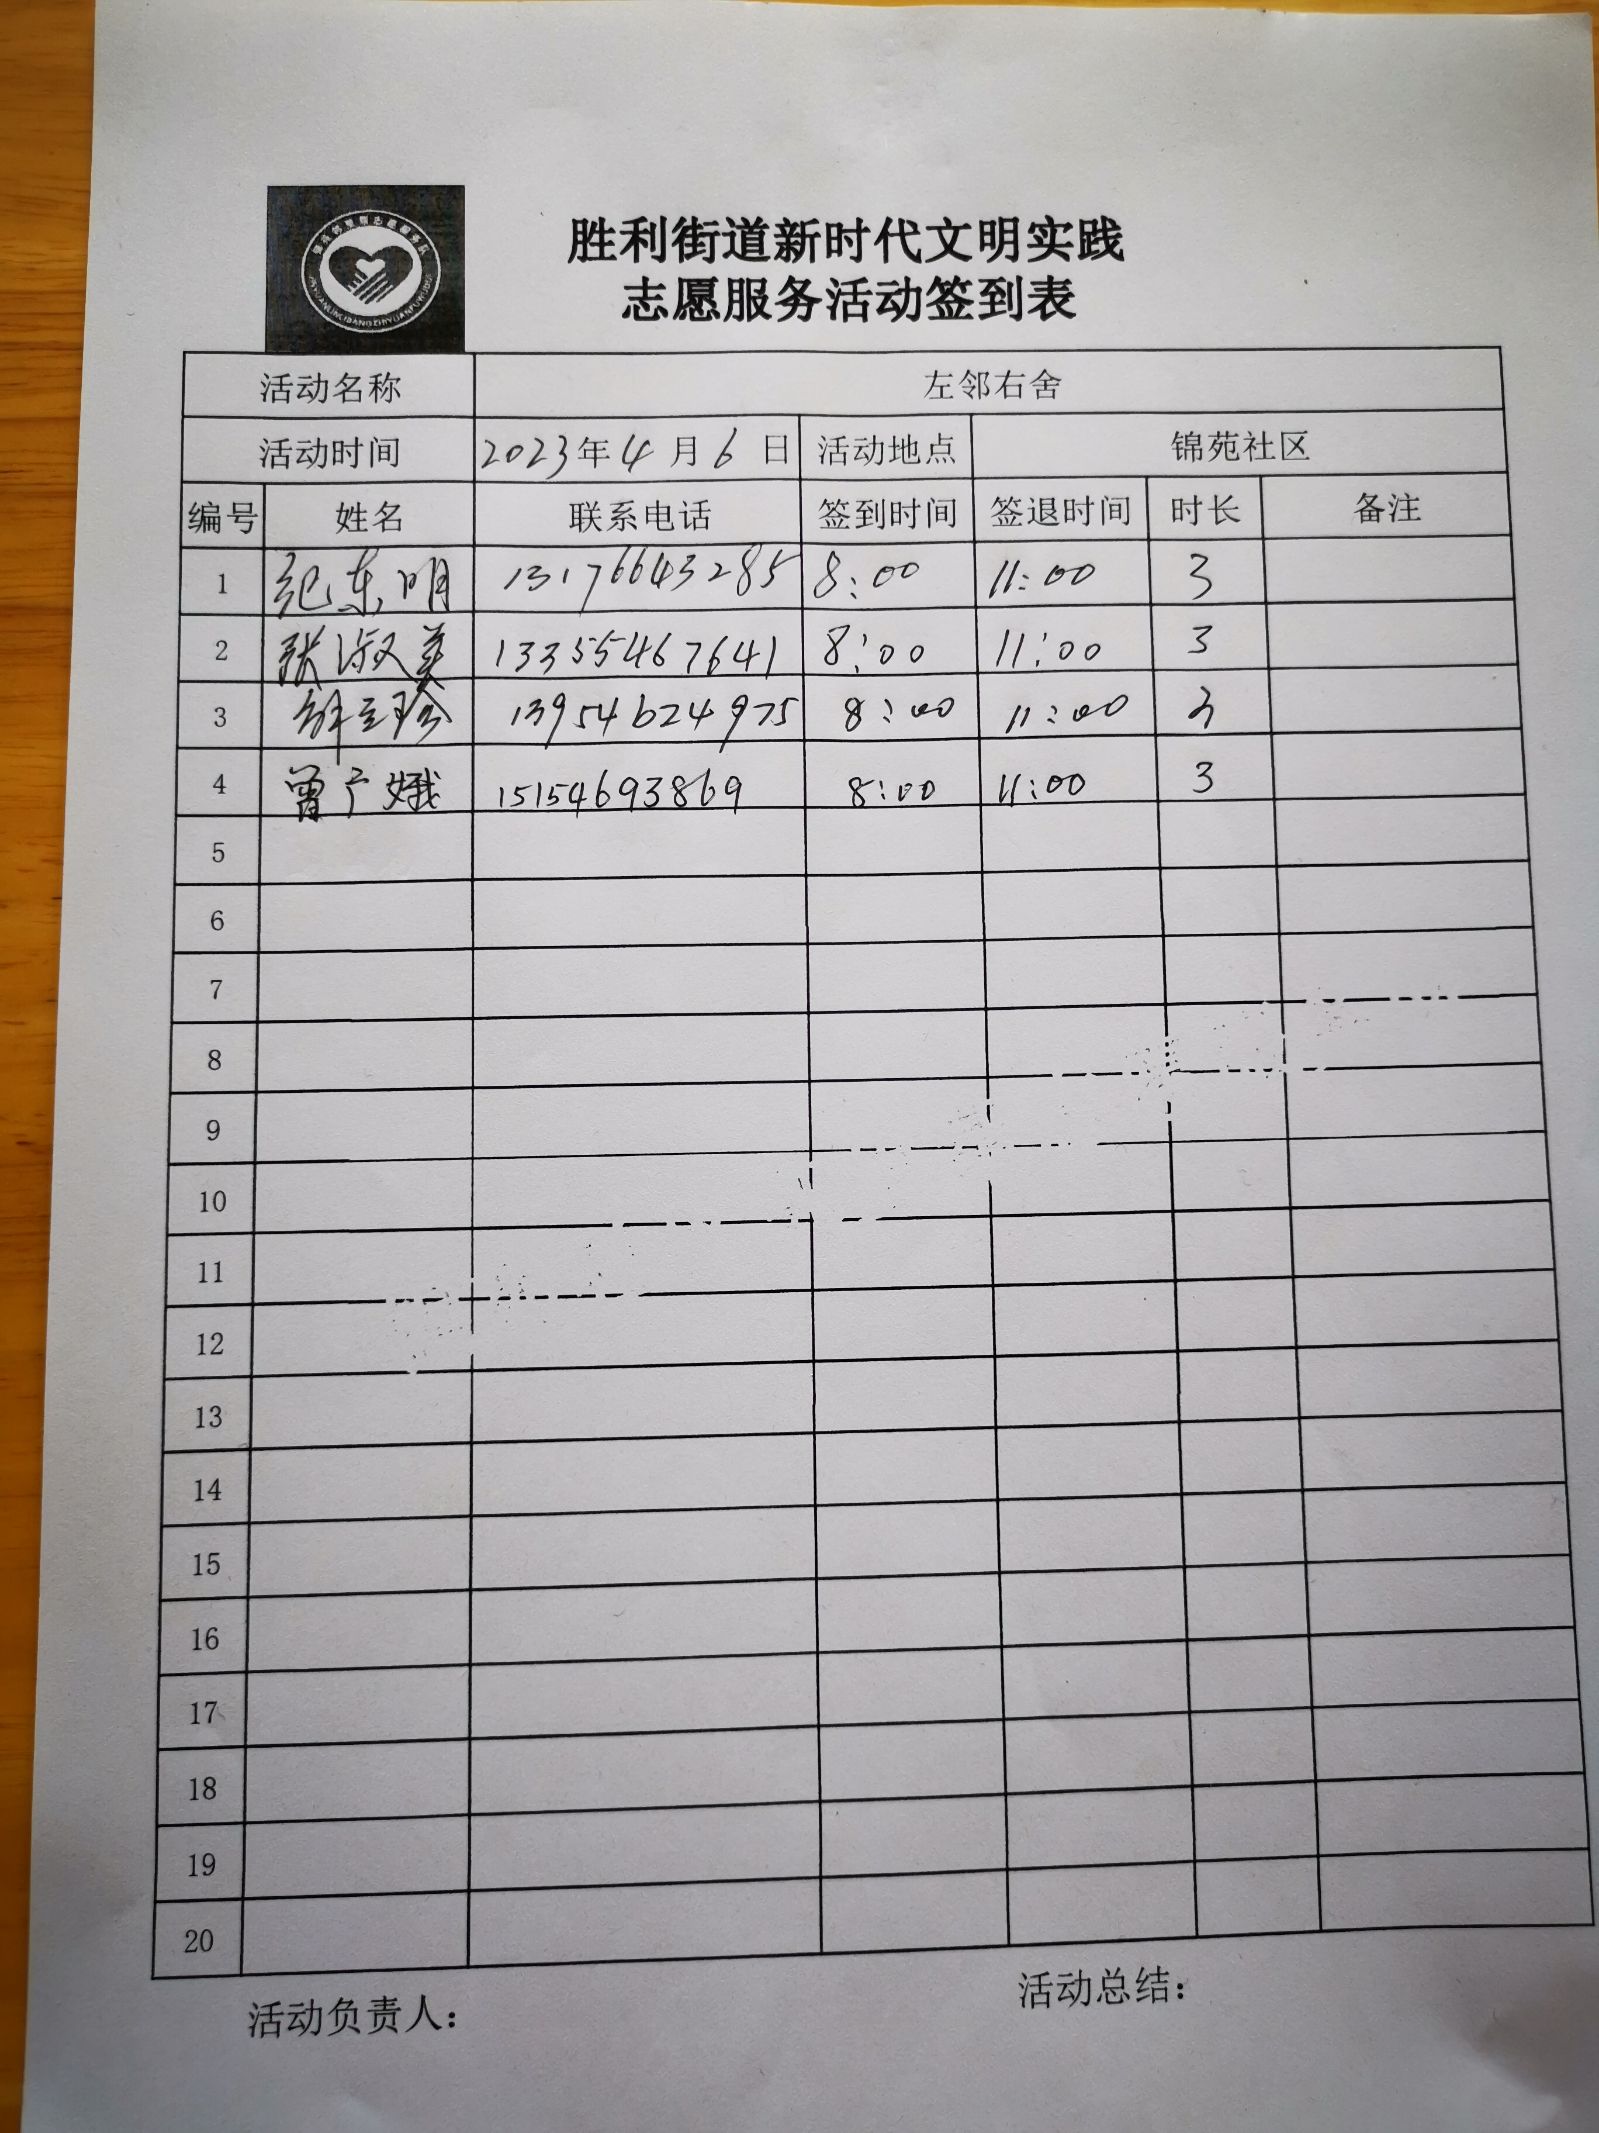 胜利街道新时代文明实践
志愿服务活动签到表
活动名称 左邻右舍
活动时间 2023年4月6日 活动地点 锦苑社区
编号 姓名 联系电话 签到时间 签退时间 时长 备注
1 纪东明 13176643285 8:00 11:00 3
2 张淑英 13355467641 8:00 11:00 3
3 13954624975 8:00 11:00 3
4 曾广娥 15154693869 8:00 11:00 3
5
6
7
8
9
10
11
12
13
14
15
16
17
18
19
20
活动负责人: 活动总结: